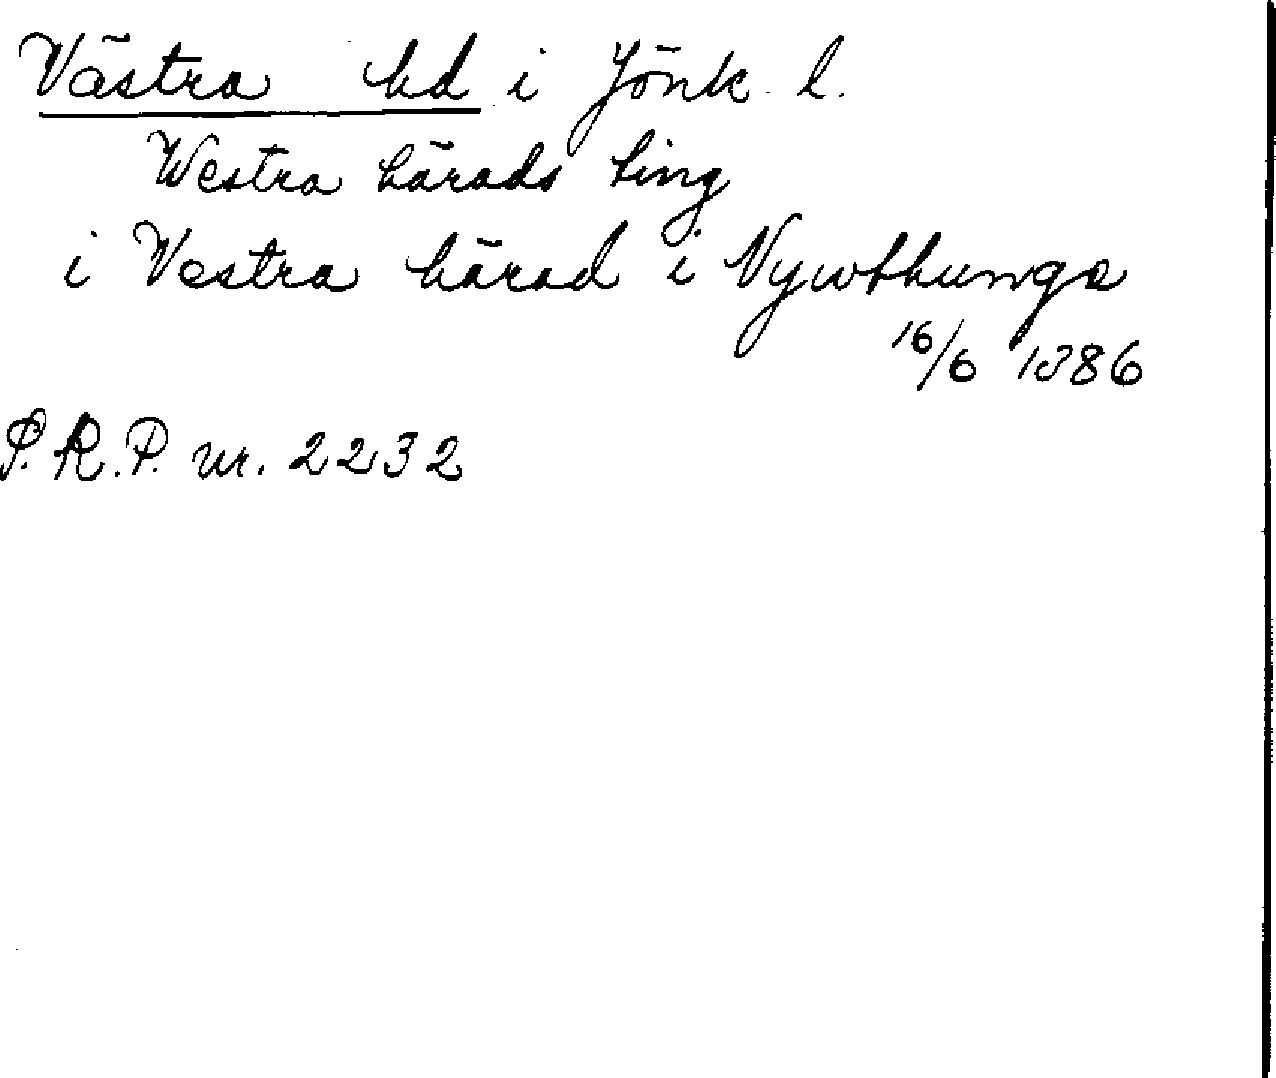 Västra hd i Jönk. l.
Westra härads ting
i Vestra härad i Nywthunga
16/6 1386
S.R.P. nr. 2232